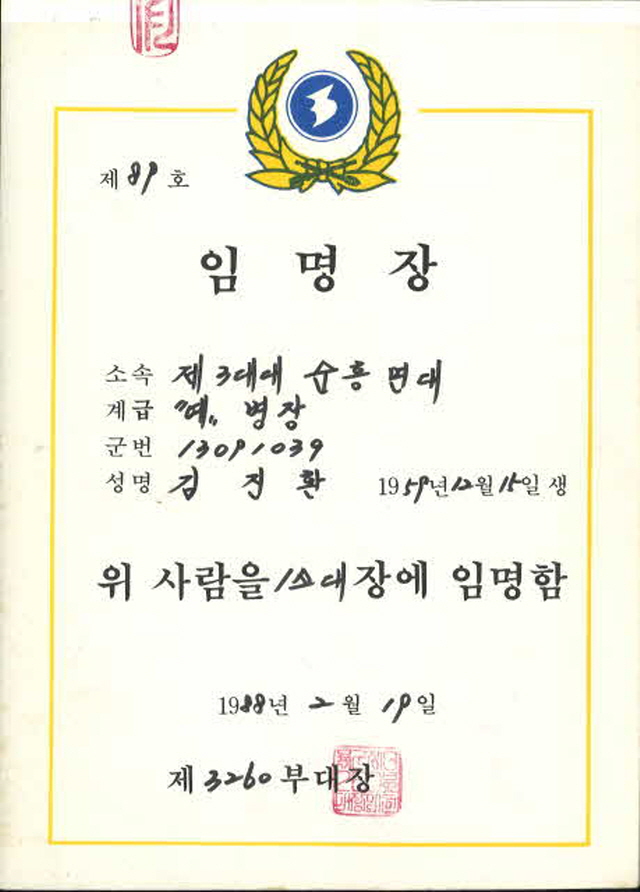 제 89 호
임 명 장
소속 제 3대대 순흥 면대
계급 "예" 병장
군번 13091039
성명 김 진 환 1959년 12월 15일 생
위 사람을 1소대장에 임명함
1988년 2월 19일
제 3260 부대장